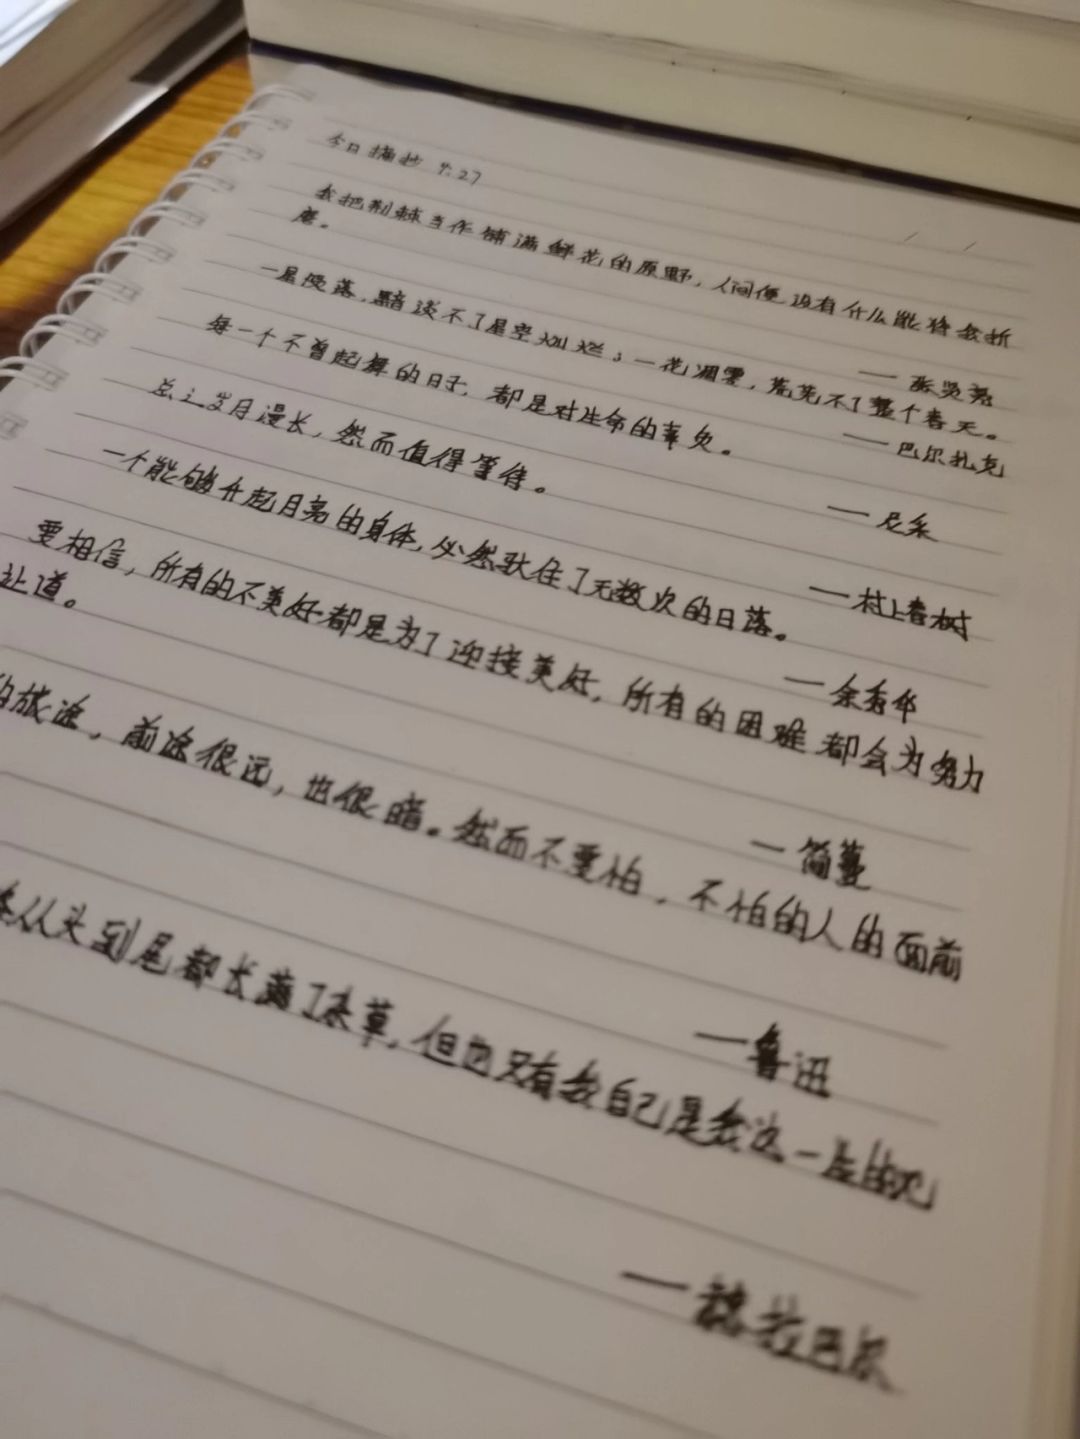 今日摘抄 9.27
我把荆棘当作铺满鲜花的原野，人间便没有什么能将我折
磨。
一星陨落，黯淡不了星空灿烂；一花凋零，荒芜不了整个春天。
——巴尔扎克
每一个不曾起舞的日子，都是对生命的辜负。
——尼采
总之岁月漫长，然而值得等待。
——村上春树
一个能够升起月亮的身体，必然驮住了无数次的日落。
——余秀华
要相信，所有的不美好都是为了迎接美好，所有的困难都会为努力
让道。
——简蔓
的旅途，前途很远，也很暗。然而不要怕，不怕的人的面前
——鲁迅
从头到尾都长满了杂草，但也只有我自己是我这一
——赫拉巴尔